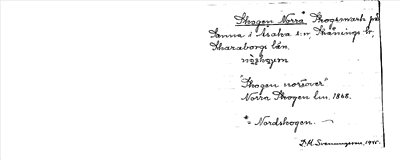 Skogen Norra* Skogsmark på
Sanna i Åsaka s:n, Skånings hd,
Skaraborgs län.
"Skogen norrover"
Norra Skogen l.m. 1868.
*= Nordskogen. —
D.A. Svenungsson, 1945.